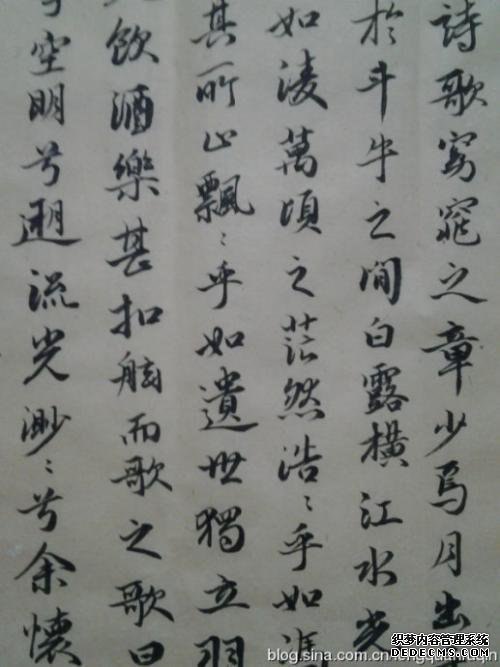 詩歌窈窕之章少焉月出
於斗牛之間白露橫江水光
如淩萬頃之茫然浩〻乎如馮
其所止飄〻乎如遺世獨立羽
飲酒樂甚扣舷而歌之歌曰
空明兮遡流光渺〻兮余懷
blog.sina.com.cn
织梦内容管理系统
DEDECMS.COM